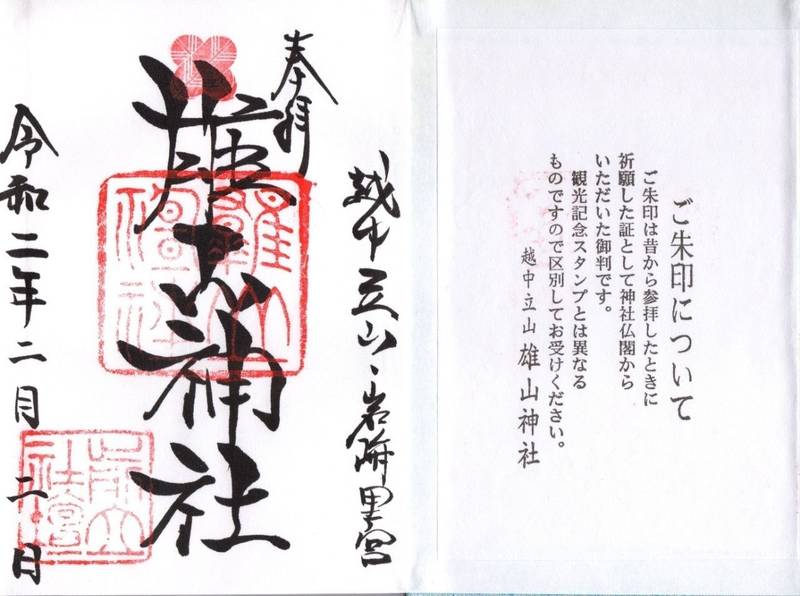 ご朱印について
ご朱印は昔から参拝したときに
祈願した証として神社仏閣から
いただいた御判です。
観光記念スタンプとは異なる
ものですので区別してお受けください。
越中立山 雄山神社
越中立山、岩峅里宮
奉拝
雄山神社
令和二年二月二日